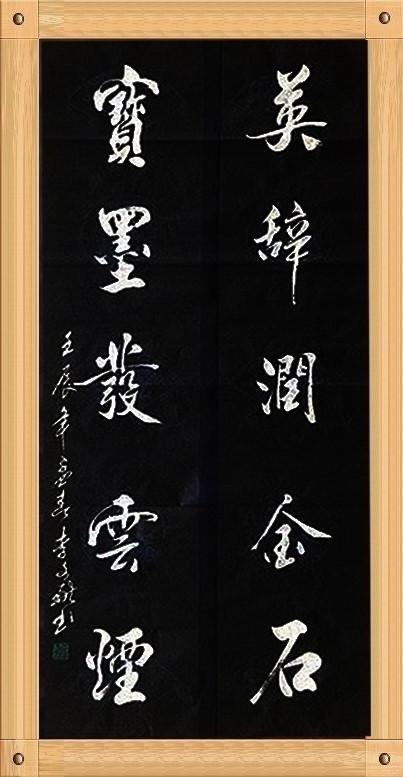 英辞潤金石
寶墨發雲煙
壬辰年孟春李